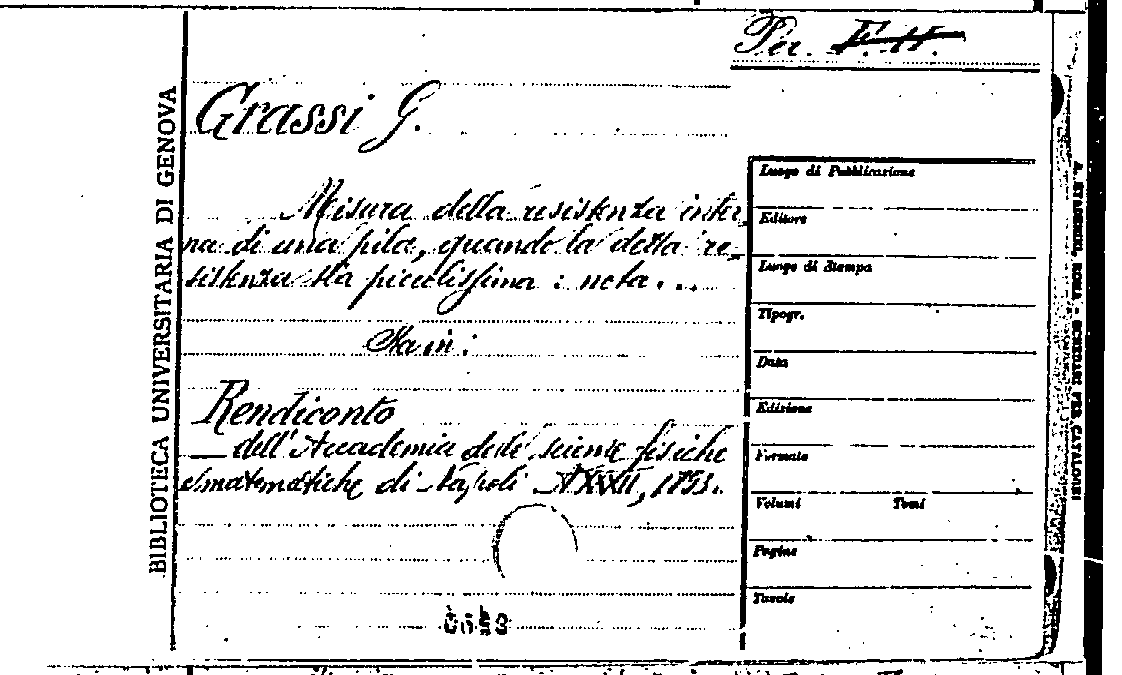 Per. F. H.
BIBLIOTECA UNIVERSITARIA DI GENOVA
Grassi G.
Misura della resistenza inter
na di una pila, quando la detta re-
sistenza sia piccolissima : nota...
Sta in:
Rendiconto
dell'Accademia delle scienze fisiche
e matematiche di Napoli
Luogo di Pubblicazione
Editore
Luogo di Stampa
Tipogr.
Data
Edizione
Formato
Volumi Tomi
Pagine
Tavole
ROMA - SCHEDARI PER CATALOGHI